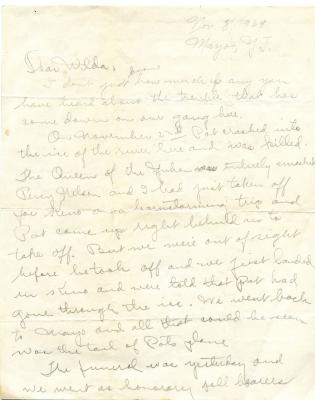 Nov. 8 1929
Mayo, Y.T.
Dear Wilda,
I don't know just how much if any you
have heard about the trouble that has
come down on our gang here.
On November 2nd Pat crashed into
the ice of the river here and was killed.
The Queen of the Yukon was entirely smashed
Percy Nelson and I had just taken off
for Keno on a barnstorming trip and
Pat came up right behind us to
take off. But we were out of sight
before he took off and we just landed
in Keno and were told that Pat had
gone through the ice. We went back
to Mayo and all that could be seen
was the tail of Pat's plane
The funeral was yesterday and
we went as honorary pall bearers